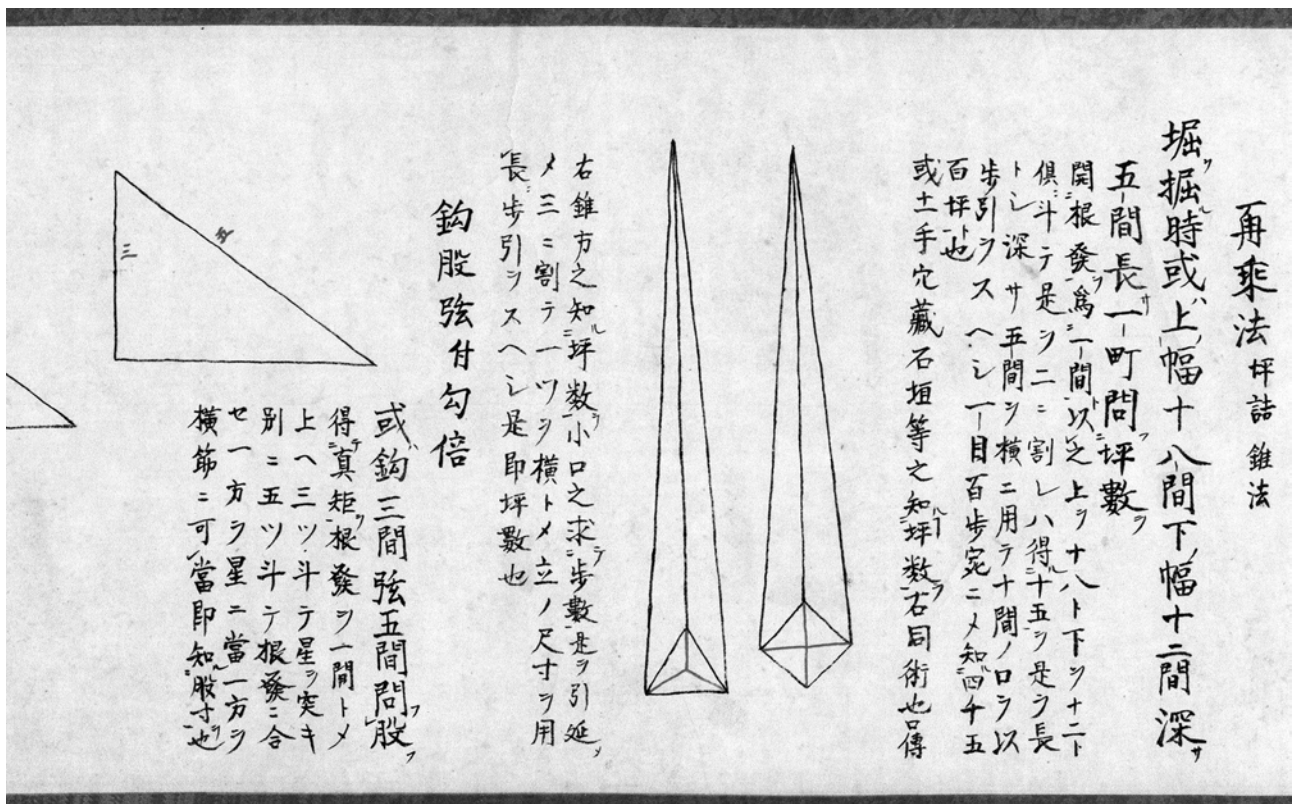 再乘法 坪詰 錐法
堀ヲ掘ル時或ハ上ノ幅十八間下ノ幅十二間深サ
五間長サ一町問フ坪數ヲ
開ニ根發ヲ為ニ一間ト以之上ヲ十八ト下ヲ十二ト
倶ニ斗テ是ヲ二ニ割レハ得ル十五ヲ是ヲ長
トシ深サ五間ヲ横ニ用テ十間ノロヲ以
歩引ヲスヘシ一目百歩宛ニメ知ル四千五
百坪ト也
或土手穴藏石垣等之知ルヿ坪数ヲ右同術也口傳
右錐方之知ル坪数ヲ小口之求テ歩數ヲ是ヲ引延
メ三ニ割テ一ツヲ横トメ立ノ尺寸ヲ用
長ニ歩引ヲスヘシ是即坪數也
鈎股弦付勾倍
三
五
或ハ鈎三間弦五間問フ股ヲ
得テ真矩ヲ根發ヲ一間トメ
上ヘ三ツ斗テ星ヲ突キ
別ニ五ツ斗テ根發ニ合
セ一方ヲ星ニ當一方ヲ
横筋ニ可當即知ル股寸ヲ也